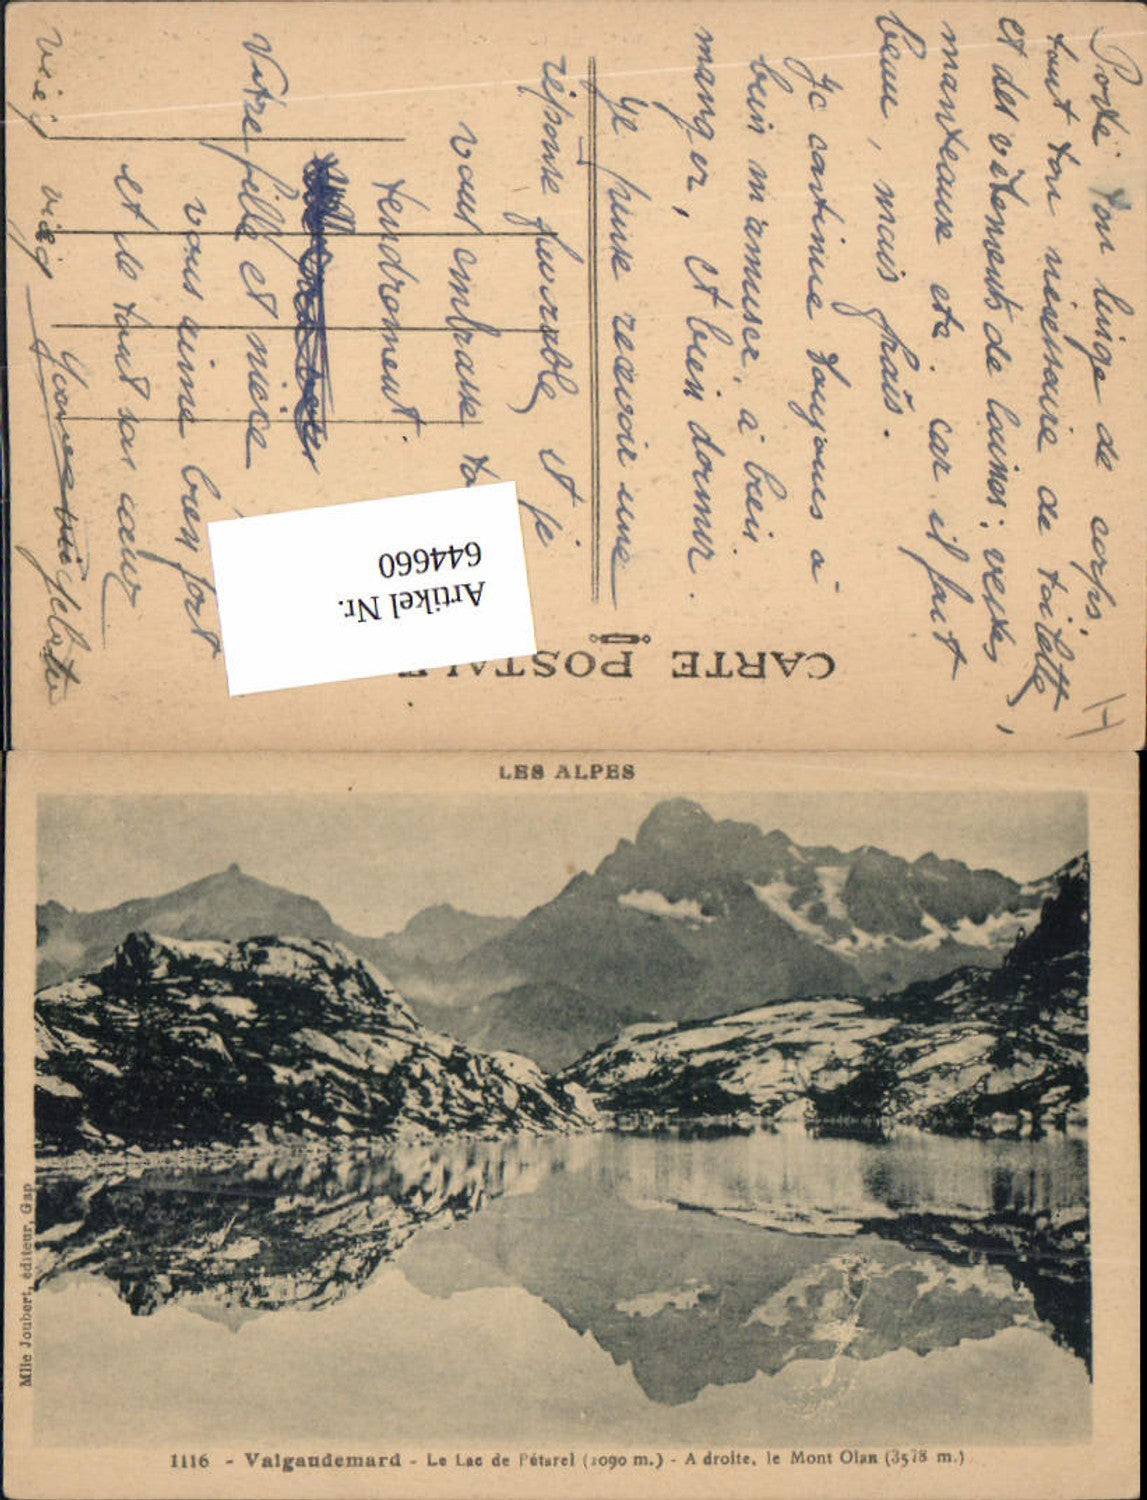 Porte ton linge de corps,
tout ton nécessaire de toilette,
et des vêtements de laines; vestes,
manteaux etc. car il fait
beau, mais frais.
Je continue toujours à
bien m'amuser, à bien
manger, et bien dormir.
Je puise recevoir une
réponse favorable, et je
vous embrasse
tendrement.
Votre fille et nièce
vous aime bien fort
et de tout son cœur
CARTE POSTALE
H
Artikel Nr.
644660
LES ALPES
Mlle Joubert, éditeur, Gap
1116 - Valgaudemard - Le Lac de Pétarel (2090 m.) - A droite, le Mont Olan (3578 m.)